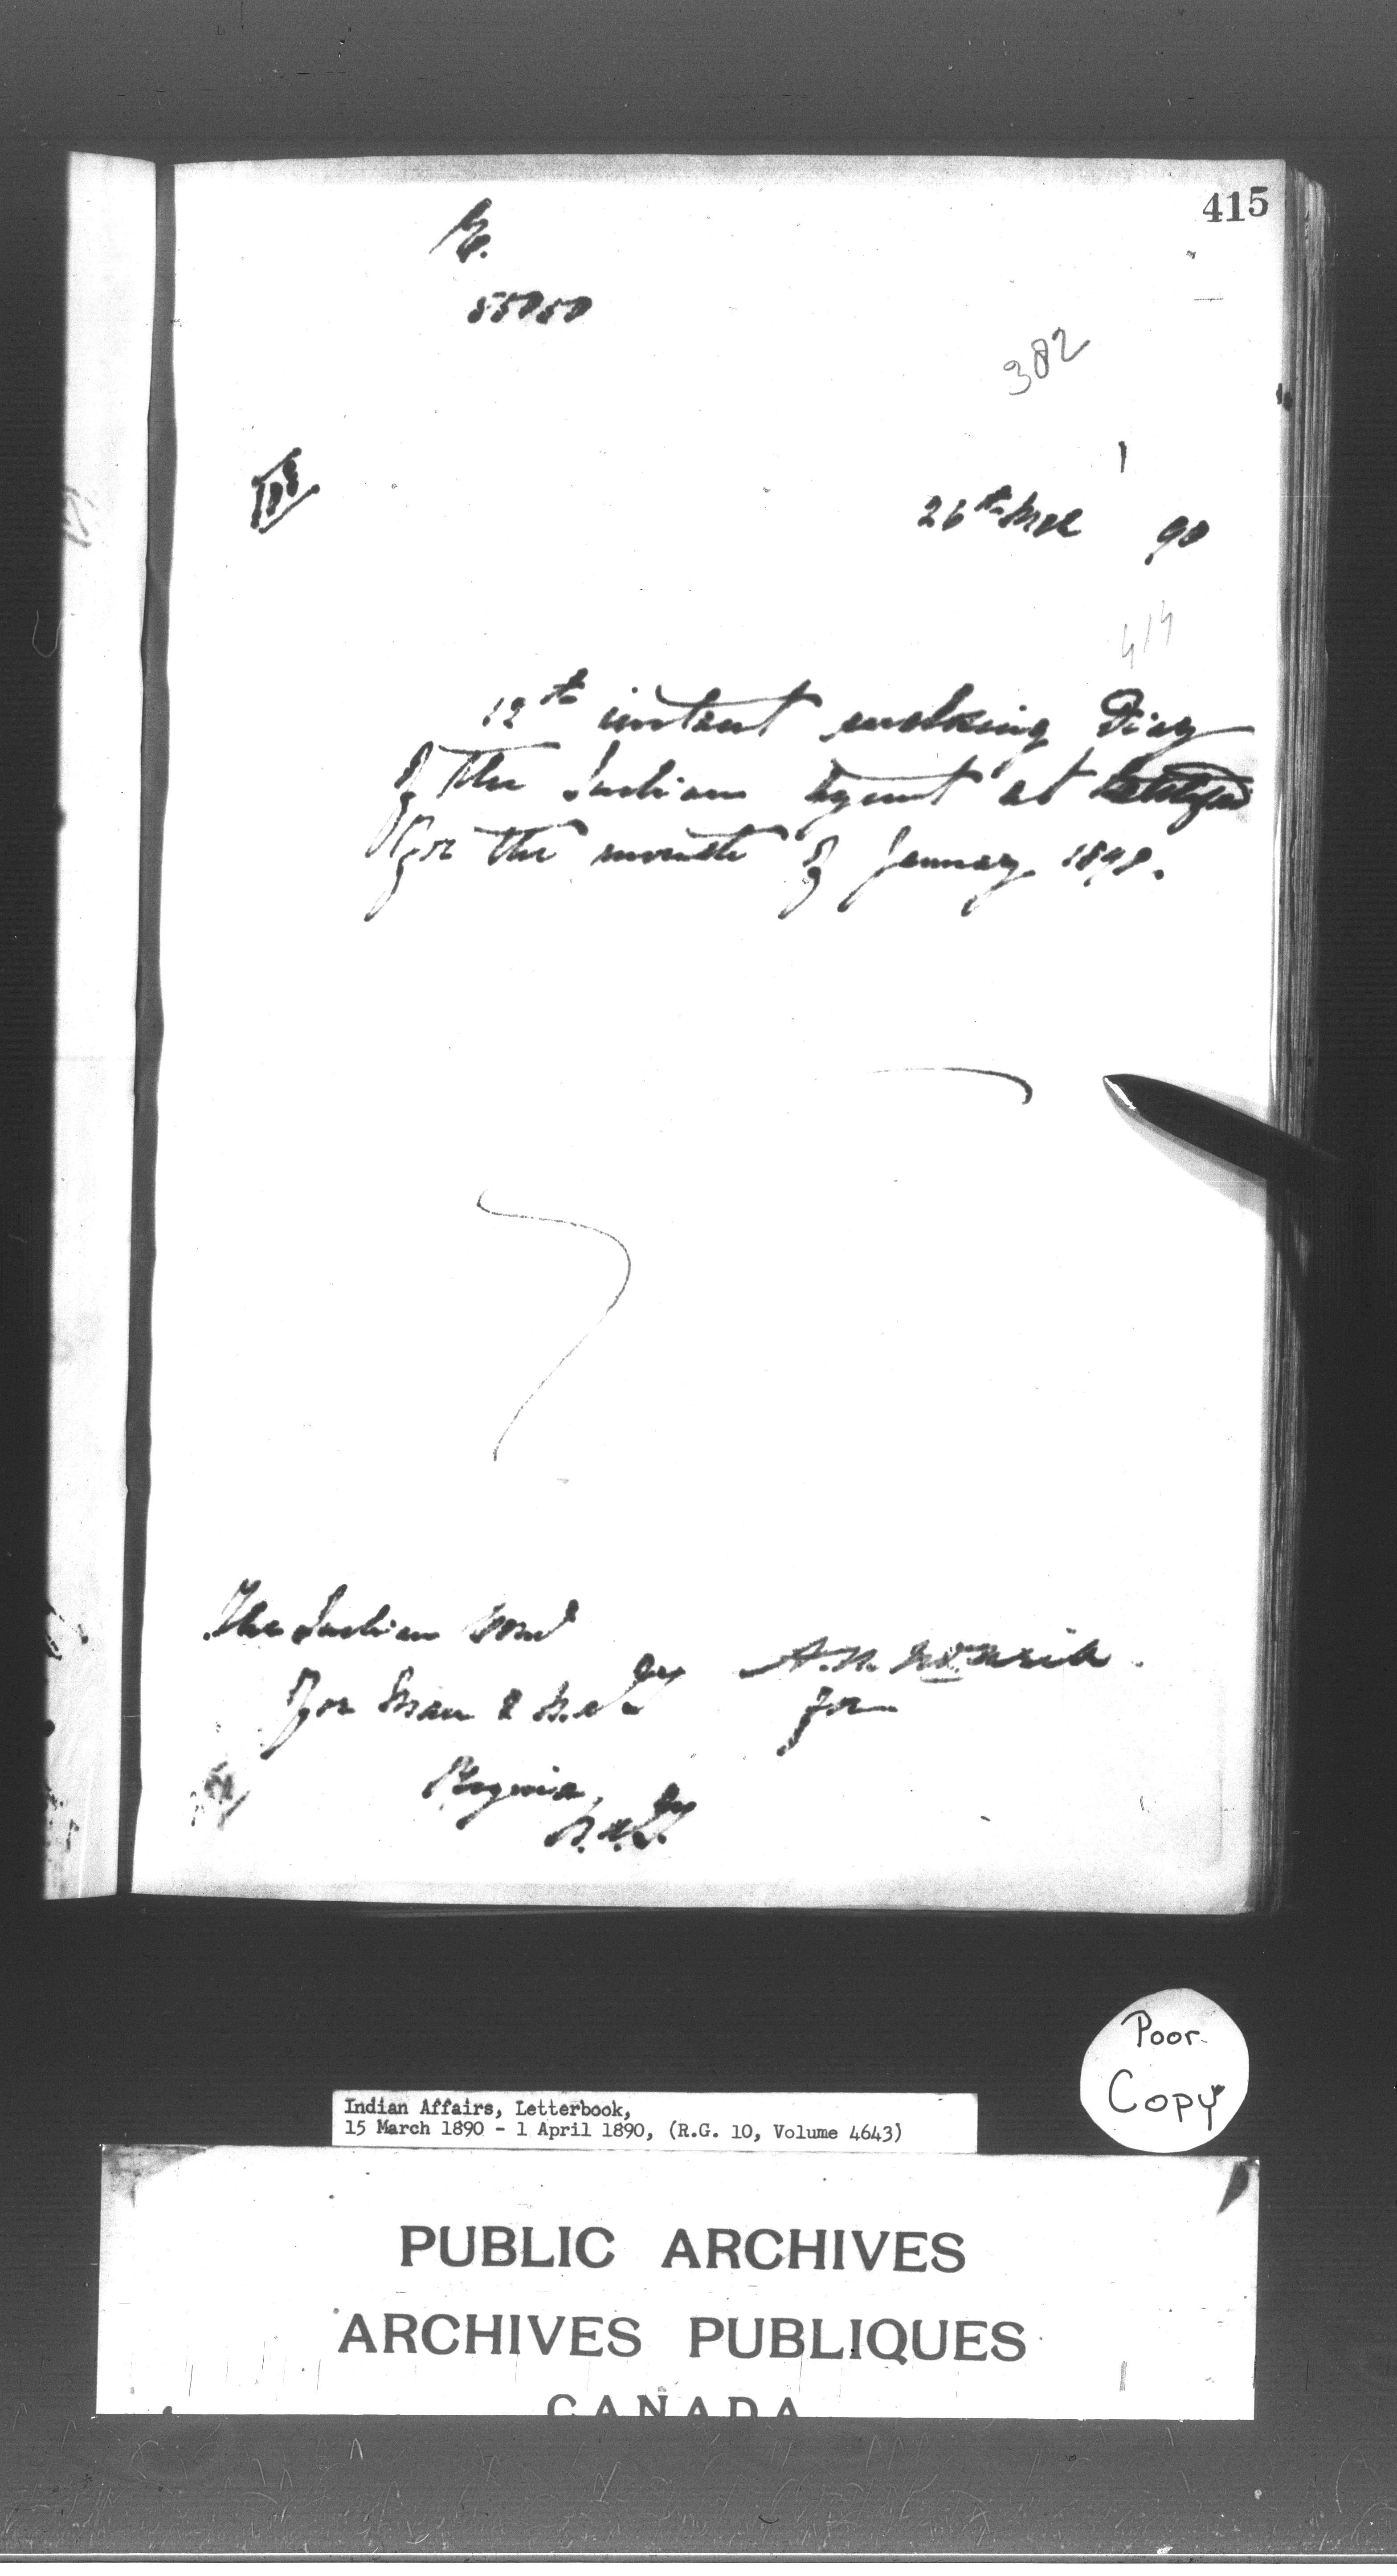 415
55050
382
26th Mch 90
414
12th instant enclosing Diary
of the Indian Agent at
for the month of January 1890.
The Indian Comr
for Man & N.W.Ty
for
Regina,
N.W.Ty
Poor
Copy
Indian Affairs, Letterbook,
15 March 1890 - 1 April 1890, (R.G. 10, Volume 4643)
PUBLIC ARCHIVES
ARCHIVES PUBLIQUES
CANADA